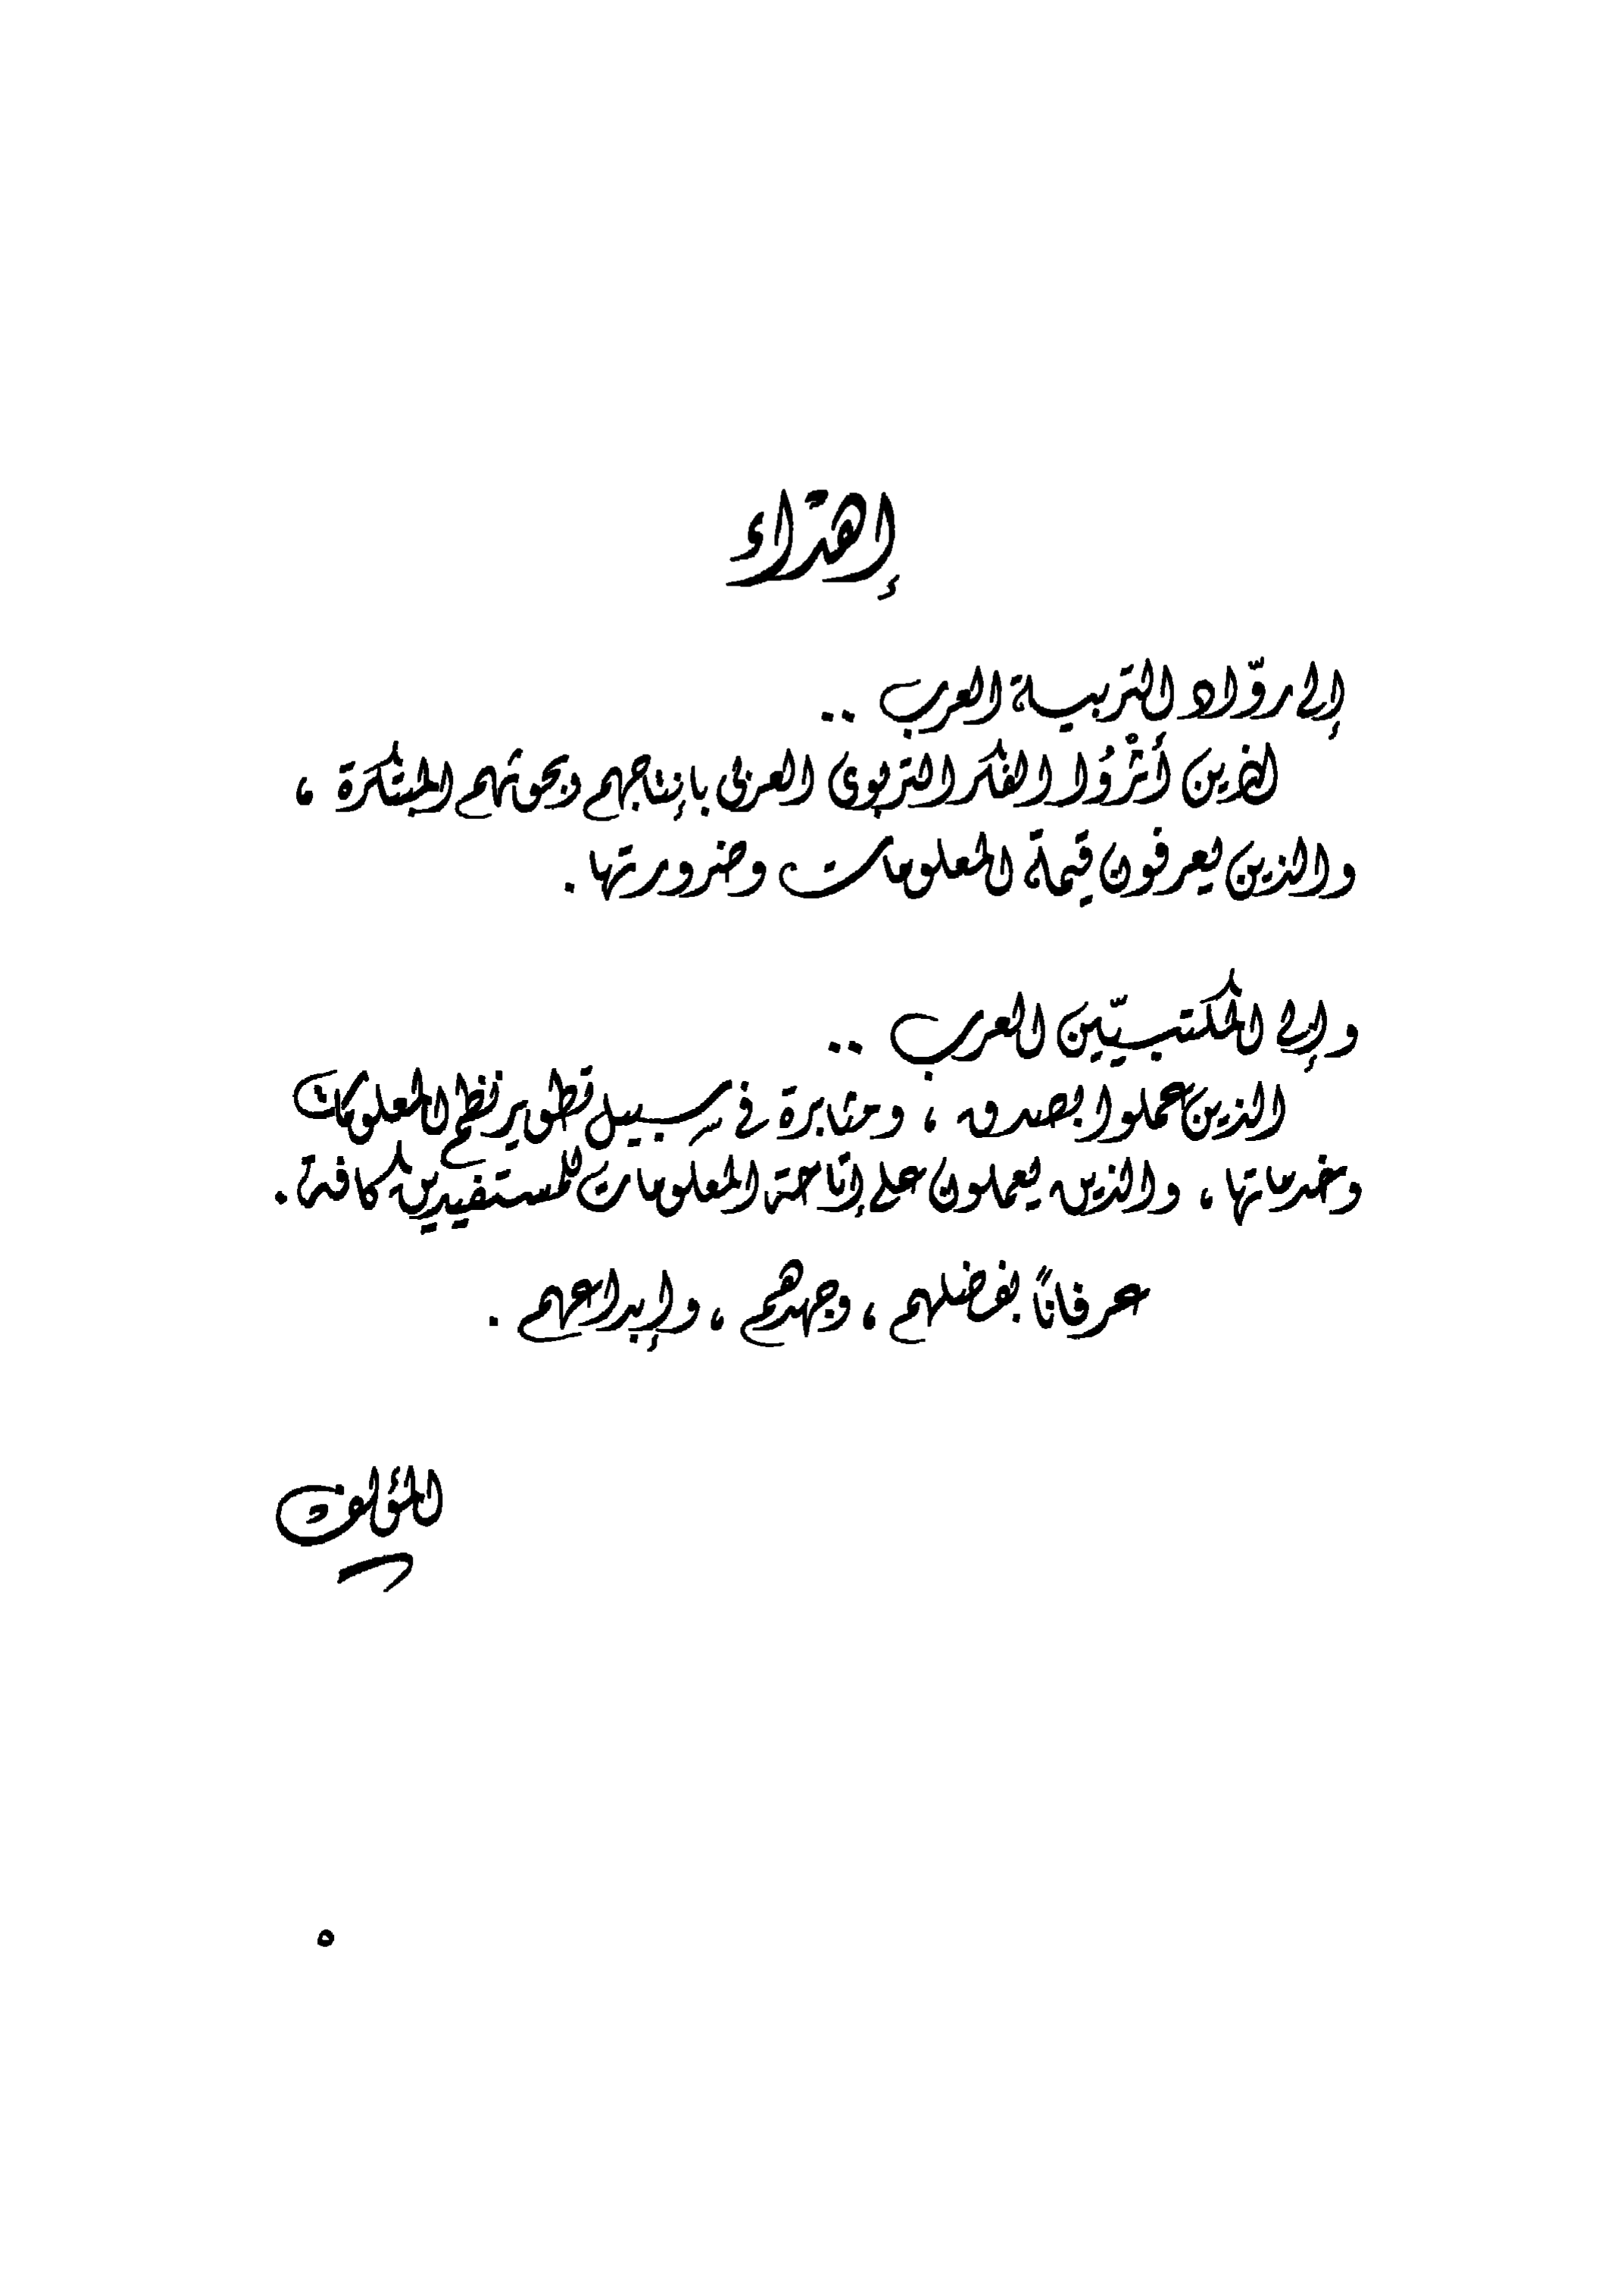 إهداء
إلى روّاد التربية العرب ..
الذين أَثْرُوا الفكر التربوى العربى بإنتاجهم وبحوثهم المبتكرة ،
والذين يعرفون قيمة المعلومات وضرورتها .
وإلى المكتبيّين العرب ..
الذين عملوا بصدق ، ومثابرة فى سبيل تطوير نظم المعلومات
وخدماتها ، والذين يعملون على إتاحة المعلومات للمستفيدين كافة .
عرفاناً بفضلهم ، وجهدهم ، وإبداعهم .
المؤلف
٥